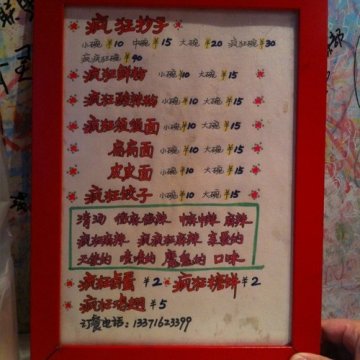 疯狂抄子
小碗 ¥10 中碗 ¥15 大碗 ¥20 疯狂碗 ¥30
疯疯狂碗 ¥90
疯狂鲜粉 小碗 ¥10 大碗 ¥15
疯狂酸辣粉 小碗 ¥10 大碗 ¥15
疯狂 面 小碗 ¥10 大碗 ¥15
面 小碗 ¥10 大碗 ¥15
皮皮面 小碗 ¥10 大碗 ¥15
疯狂饺子 小碗 ¥10 大碗 ¥15
清汤 微麻微辣 中麻中辣 麻辣
疯狂麻辣 疯疯狂麻辣
天使的 魔鬼的 口味
疯狂卤蛋 ¥2 疯狂糖饼 ¥2
疯狂鸡翅 ¥5
订餐电话：13371623399